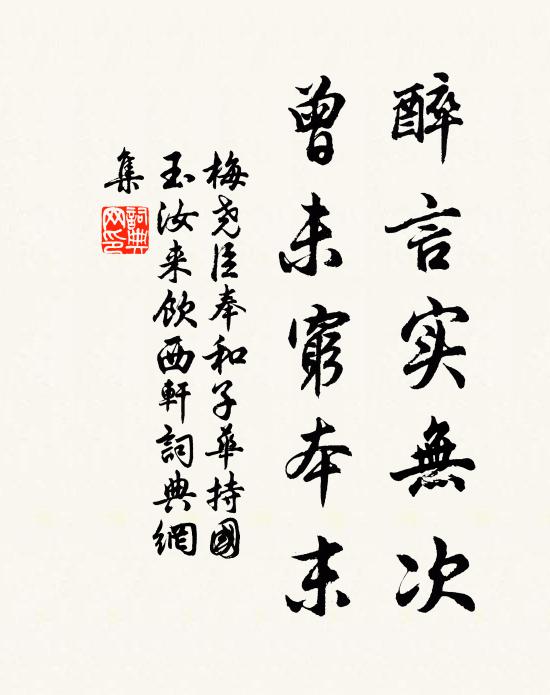 醉言实無次
曾未窮本末
梅尧臣奉和子華持國
玉汝来飲西軒詞典網
集
詞典
网印